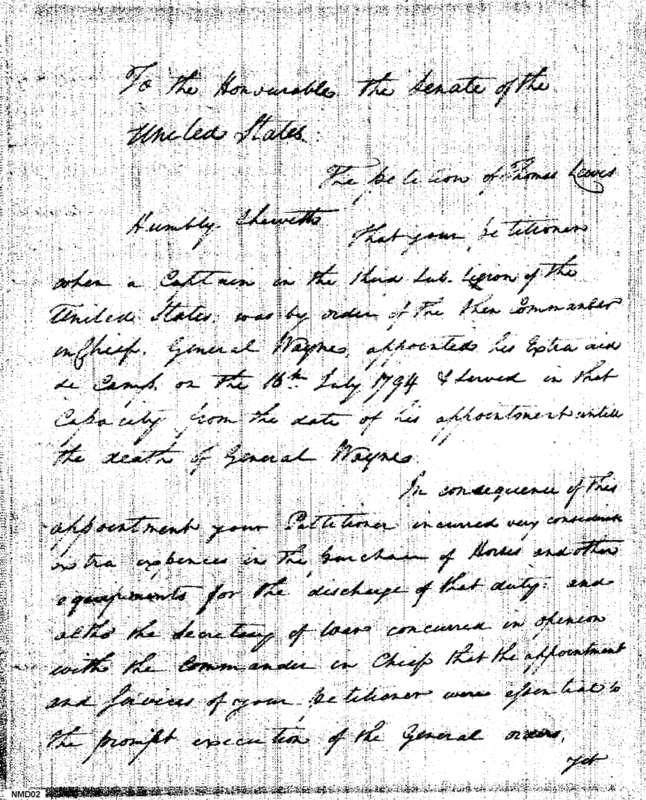 To the Honourable the Senate of the
United States.
The petition of Thomas Lewis
Humbly Sheweth
that your petitioner
when a Captain in the third Sub. Legion of the
United States, was by order of the then Commander
in Chief, General Wayne, appointed his Extra aid
de Camp, on the 16th July 1794 & served in that
Capacity from the date of his appointment untill
the death of General Wayne.
In consequence of this
appointment your Petitioner incurred very considerable
extra expences in the purchase of Horses and other
equipments for the discharge of that duty: and
altho the Secretary of War concurred in opinion
with the Commander in Chief that the appointment
and services of your petitioner were essential to
the prompt execution of the General orders,
yet
NMD02